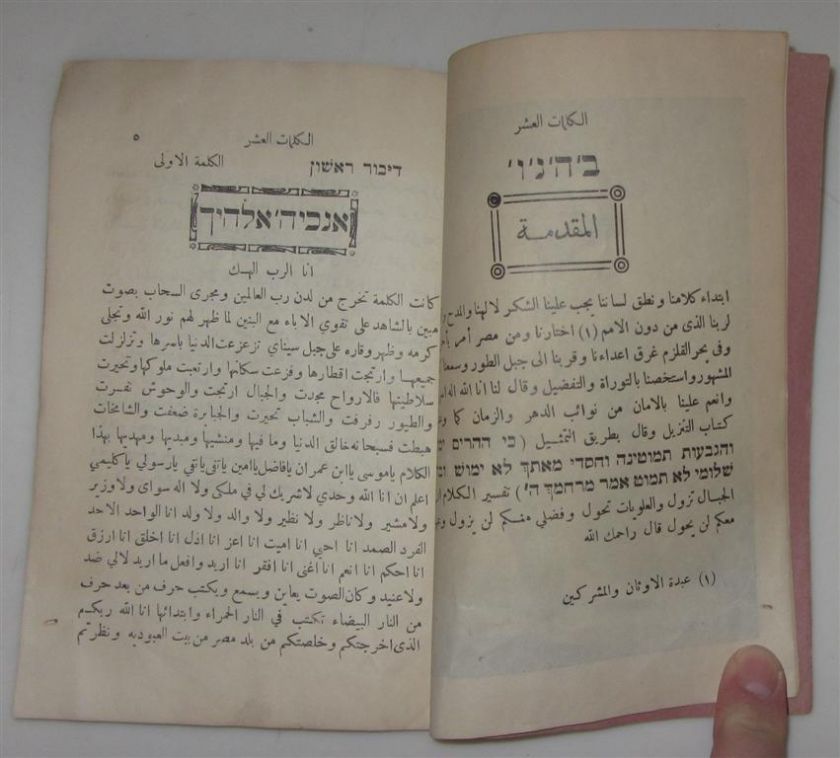 الكلمات العشر
ב'ה'נ'ו'
المقدمة
ابتداء كلامنا ونطق لساننا يجب علينا الشكر لالهنا والمدح
لربنا الذى من دون الامم (١) اختارنا ومن مصر
وفى بحر القلزم غرق اعداءنا وقربنا الى جبل الطور وسمعنا
المشهور واستخصنا بالتوراة والتفضيل وقال لنا انا الله
وانعم علينا بالامان من نوائب الدهر والزمان كما
كتاب التنزيل وقال بطريق التمثيل (כי ההרים
והגבעות תמוטינה וחסדי מאתך לא ימוש
שלומי לא תמוט אמר מרחמך ה') تفسير الكلام
الجبال تزول والعلويات تحول وفضلي منكم لن يزول
معكم لن يحول قال راحمك الله
(١) عبدة الاوثان والمشركين
الكلمات العشر ٥
דיבור ראשון الكلمة الاولى
אנכי ה' אלהיך
انا الرب الهك
كانت الكلمة تخرج من لدن رب العالمين ومجرى السحاب بصوت
مبين بالشاهد على تقوي الاباء مع البنين لما ظهر لهم نور الله وتجلى
كرمه وظهر وقاره على جبل سيناي تزعزعت الدنيا باسرها وتزلزلت
جميعها وارتجت اقطارها وفزعت سكانها وارتعبت ملوكها وتحيرت
سلاطينها فالارواح مجدت والجبال ارتجت والوحوش نفسرت
والطيور رفرفت والشباب تحيرت والجبابرة ضعفت والشامخات
هبطت فسبحانه خالق الدنيا وما فيها ومنشيها ومبديها ومهديها بهذا
الكلام ياموسى ياابن عمران يافاضل ياامين ياتقى ياتقي يارسولي ياكليمي
اعلم ان انا الله وحدي لاشريك لي في ملكى ولا اله سواى ولا وزير
ولا مشير ولا ناظر ولا نظير ولا والد ولا ولد انا الواحد الاحد
الفرد الصمد انا احيي انا اميت انا اعز انا اذل انا اخلق انا ارزق
انا احكم انا انعم انا اغنى انا افقر انا اريد وافعل ما اريد لالي ضد
ولا عنيد وكان الصوت يعاين ويسمع ويكتب حرف من بعد حرف
من النار البيضاء تكتب في النار الحمراء وابتدائها انا الله ربكم
الذى اخرجتكم وخلصتكم من بلد مصر من بيت العبوديه ونظرتم